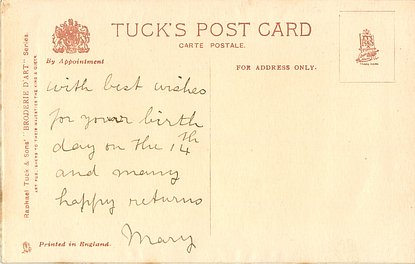 TUCK'S POST CARD
CARTE POSTALE.
By Appointment
FOR ADDRESS ONLY.
with best wishes
for your birth
day on the 14th
and many
happy returns
Mary
Printed in England.
Raphael Tuck & Sons' "BRODERIE D'ART" Series.
ART PUBLISHERS TO THEIR MAJESTIES THE KING & QUEEN
TRADE MARK